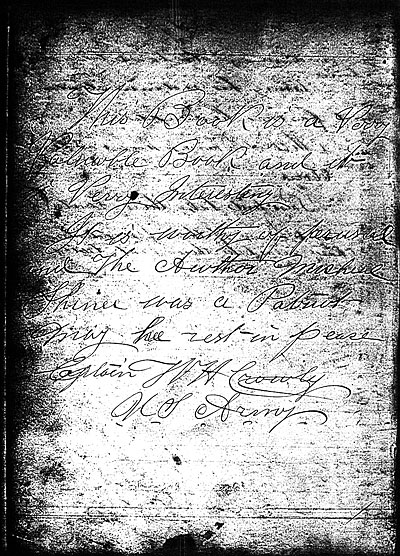 This Book is a Very
Valuable Book and it
is Very Interesting
It is worthy of perusal
and The Author Michael
Shiner was a Patriot
may hee rest in peace
Captain W H Crowley
U S Army